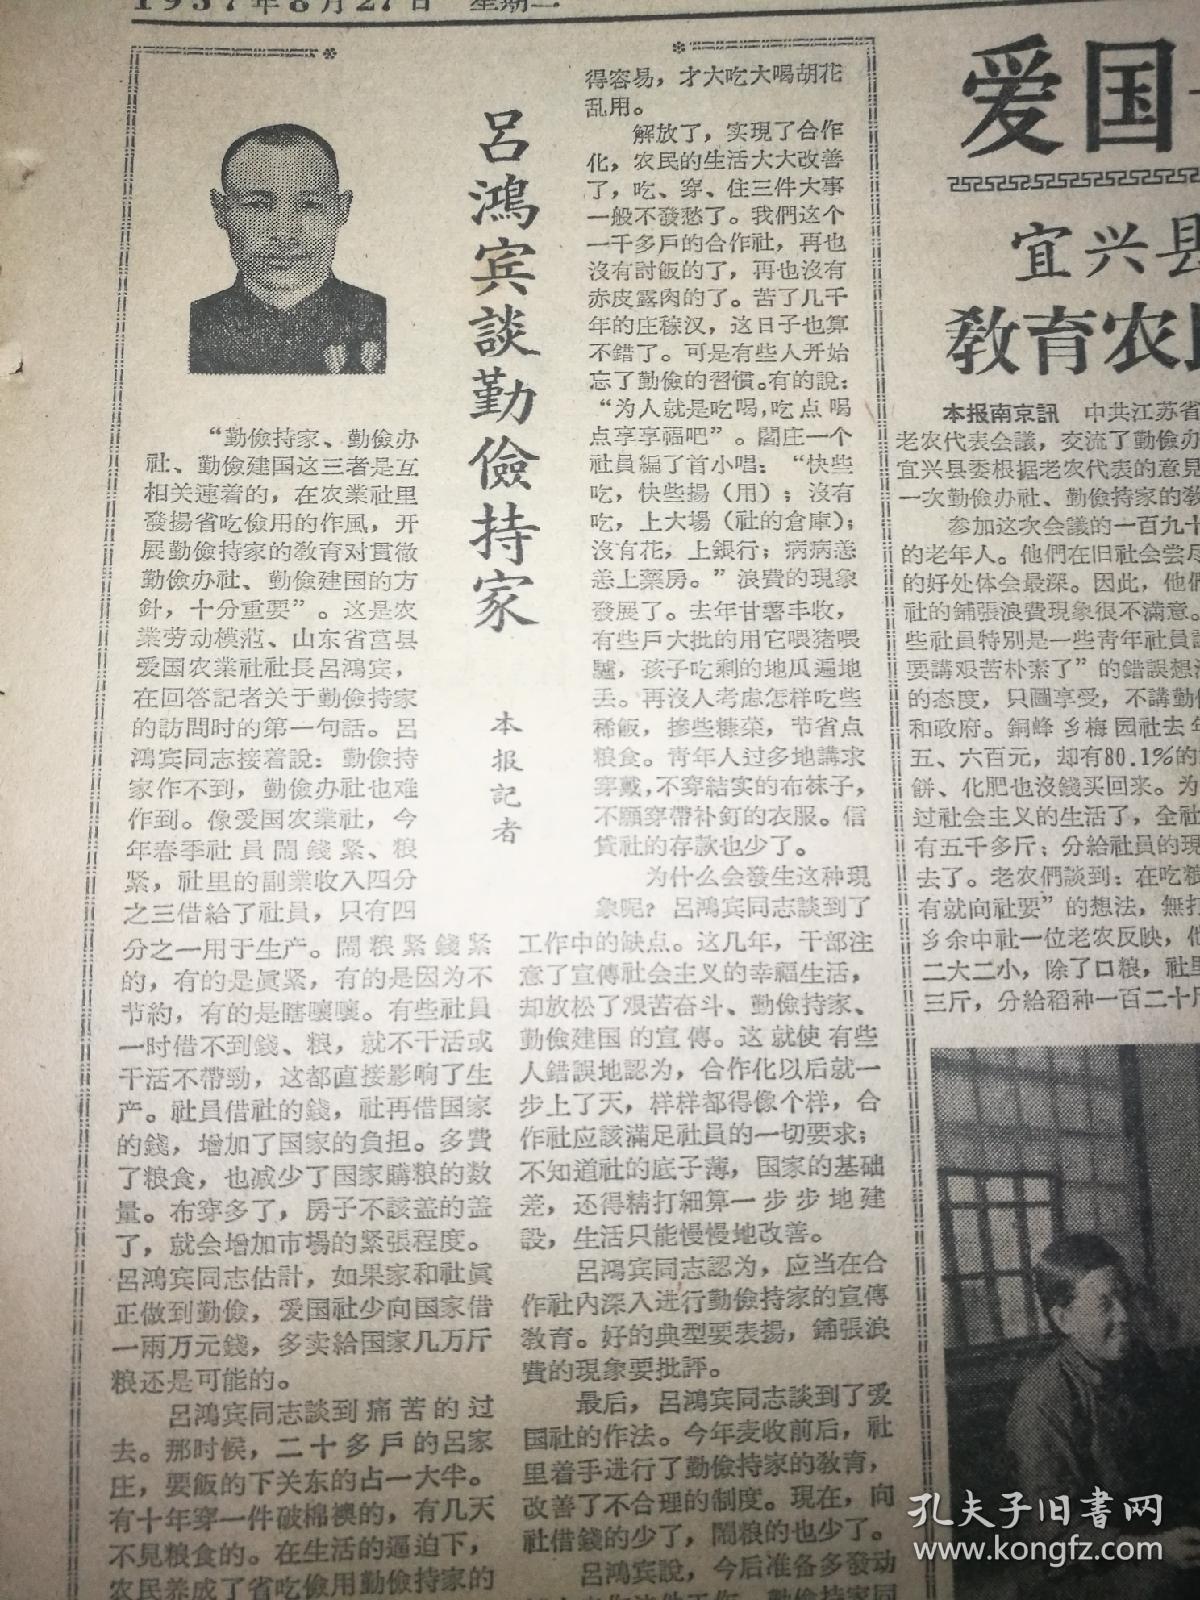 1957年8月27日 星期二
呂鴻宾談勤儉持家
本报記者
“勤儉持家、勤儉办
社、勤儉建国这三者是互
相关連着的，在农業社里
發揚省吃儉用的作風，开
展勤儉持家的敎育对貫徹
勤儉办社、勤儉建国的方
針，十分重要”。这是农
業劳动模范、山东省莒县
爱国农業社社長呂鴻宾，
在回答記者关于勤儉持家
的訪問时的第一句話。呂
鴻宾同志接着說：勤儉持
家作不到，勤儉办社也难
作到。像爱国农業社，今
年春季社員鬧錢紧、粮
紧，社里的副業收入四分
之三借給了社員，只有四
分之一用于生产。鬧粮紧錢紧
的，有的是眞紧，有的是因为不
节約，有的是瞎嚷嚷。有些社員
一时借不到錢、粮，就不干活或
干活不帶勁，这都直接影响了生
产。社員借社的錢，社再借国家
的錢，增加了国家的負担。多費
了粮食，也减少了国家購粮的数
量。布穿多了，房子不該盖的盖
了，就会增加市場的緊張程度。
呂鴻宾同志估計，如果家和社眞
正做到勤儉，爱国社少向国家借
一兩万元錢，多卖給国家几万斤
粮还是可能的。
呂鴻宾同志談到痛苦的过
去。那时候，二十多戶的呂家
庄，要飯的下关东的占一大半。
有十年穿一件破棉襖的，有几天
不見粮食的。在生活的逼迫下，
农民养成了省吃儉用勤儉持家的
得容易，才大吃大喝胡花
乱用。
解放了，实現了合作
化，农民的生活大大改善
了，吃、穿、住三件大事
一般不發愁了。我們这个
一千多戶的合作社，再也
沒有討飯的了，再也沒有
赤皮露肉的了。苦了几千
年的庄稼汉，这日子也算
不錯了。可是有些人开始
忘了勤儉的習慣。有的說：
“为人就是吃喝，吃点喝
点享享福吧”。閻庄一个
社員編了首小唱：“快些
吃，快些揚（用）；沒有
吃，上大場（社的倉庫）；
沒有花，上銀行；病病恙
恙上藥房。”浪費的現象
發展了。去年甘薯丰收，
有些戶大批的用它喂猪喂
驢，孩子吃剩的地瓜遍地
丢。再沒人考虑怎样吃些
稀飯，摻些糠菜，节省点
粮食。靑年人过多地講求
穿戴，不穿結实的布袜子，
不願穿帶补釘的衣服。信
貸社的存款也少了。
为什么会發生这种現
象呢？呂鴻宾同志談到了
工作中的缺点。这几年，干部注
意了宣傳社会主义的幸福生活，
却放松了艰苦奋斗、勤儉持家、
勤儉建国的宣傳。这就使有些
人錯誤地認为，合作化以后就一
步上了天，样样都得像个样，合
作社应該滿足社員的一切要求；
不知道社的底子薄，国家的基础
差，还得精打細算一步步地建
設，生活只能慢慢地改善。
呂鴻宾同志認为，应当在合
作社內深入进行勤儉持家的宣傳
敎育。好的典型要表揚，鋪張浪
費的現象要批評。
最后，呂鴻宾同志談到了爱
国社的作法。今年麦收前后，社
里着手进行了勤儉持家的敎育，
改善了不合理的制度。現在，向
社借錢的少了，鬧粮的也少了。
呂鴻宾說，今后准备多發动
爱国
宜兴县
敎育农
本报南京訊 中共江苏省
老农代表会議，交流了勤儉办
宜兴县委根据老农代表的意見
一次勤儉办社、勤儉持家的敎
参加这次会議的一百九十
的老年人。他們在旧社会尝尽
的好处体会最深。因此，他們
社的鋪張浪費現象很不滿意。
些社員特別是一些靑年社員
要講艰苦朴素了”的錯誤想
的态度，只圖享受，不講勤
和政府。銅峰乡梅园社去年
五、六百元，却有80.1%的
餅、化肥也沒錢买回来。为
过社会主义的生活了，全社
有五千多斤；分給社員的現
去了。老农們談到：在吃粮
有就向社要”的想法，無打
乡余中社一位老农反映，他
二大二小，除了口粮，社里
三斤，分給稻种一百二十斤
孔夫子旧書网
www.kongfz.com